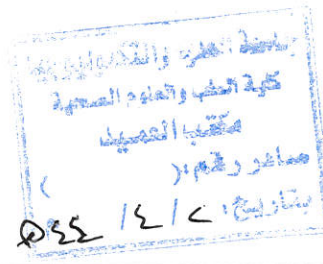 جامعة العلوم والتكنولوجيا
كلية الطب والعلوم الصحية
مكتب العميد
صادر رقم: ( )
بتاريخ: ٢ / ٤ /